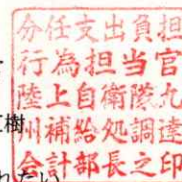 分任支出負担
行為担当官
樹
陸上自衛隊九
州補給処調達
会計部長之印